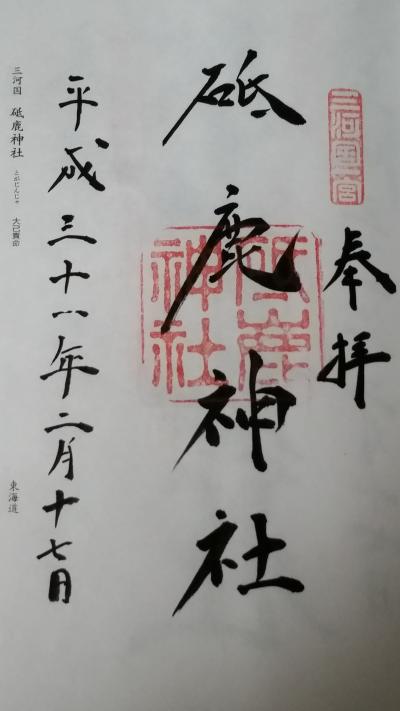 三河國一宮
奉拝
砥鹿神社
砥鹿神社
平成三十一年二月十七日
三河国 砥鹿神社 とがじんじゃ 大己貴命
東海道